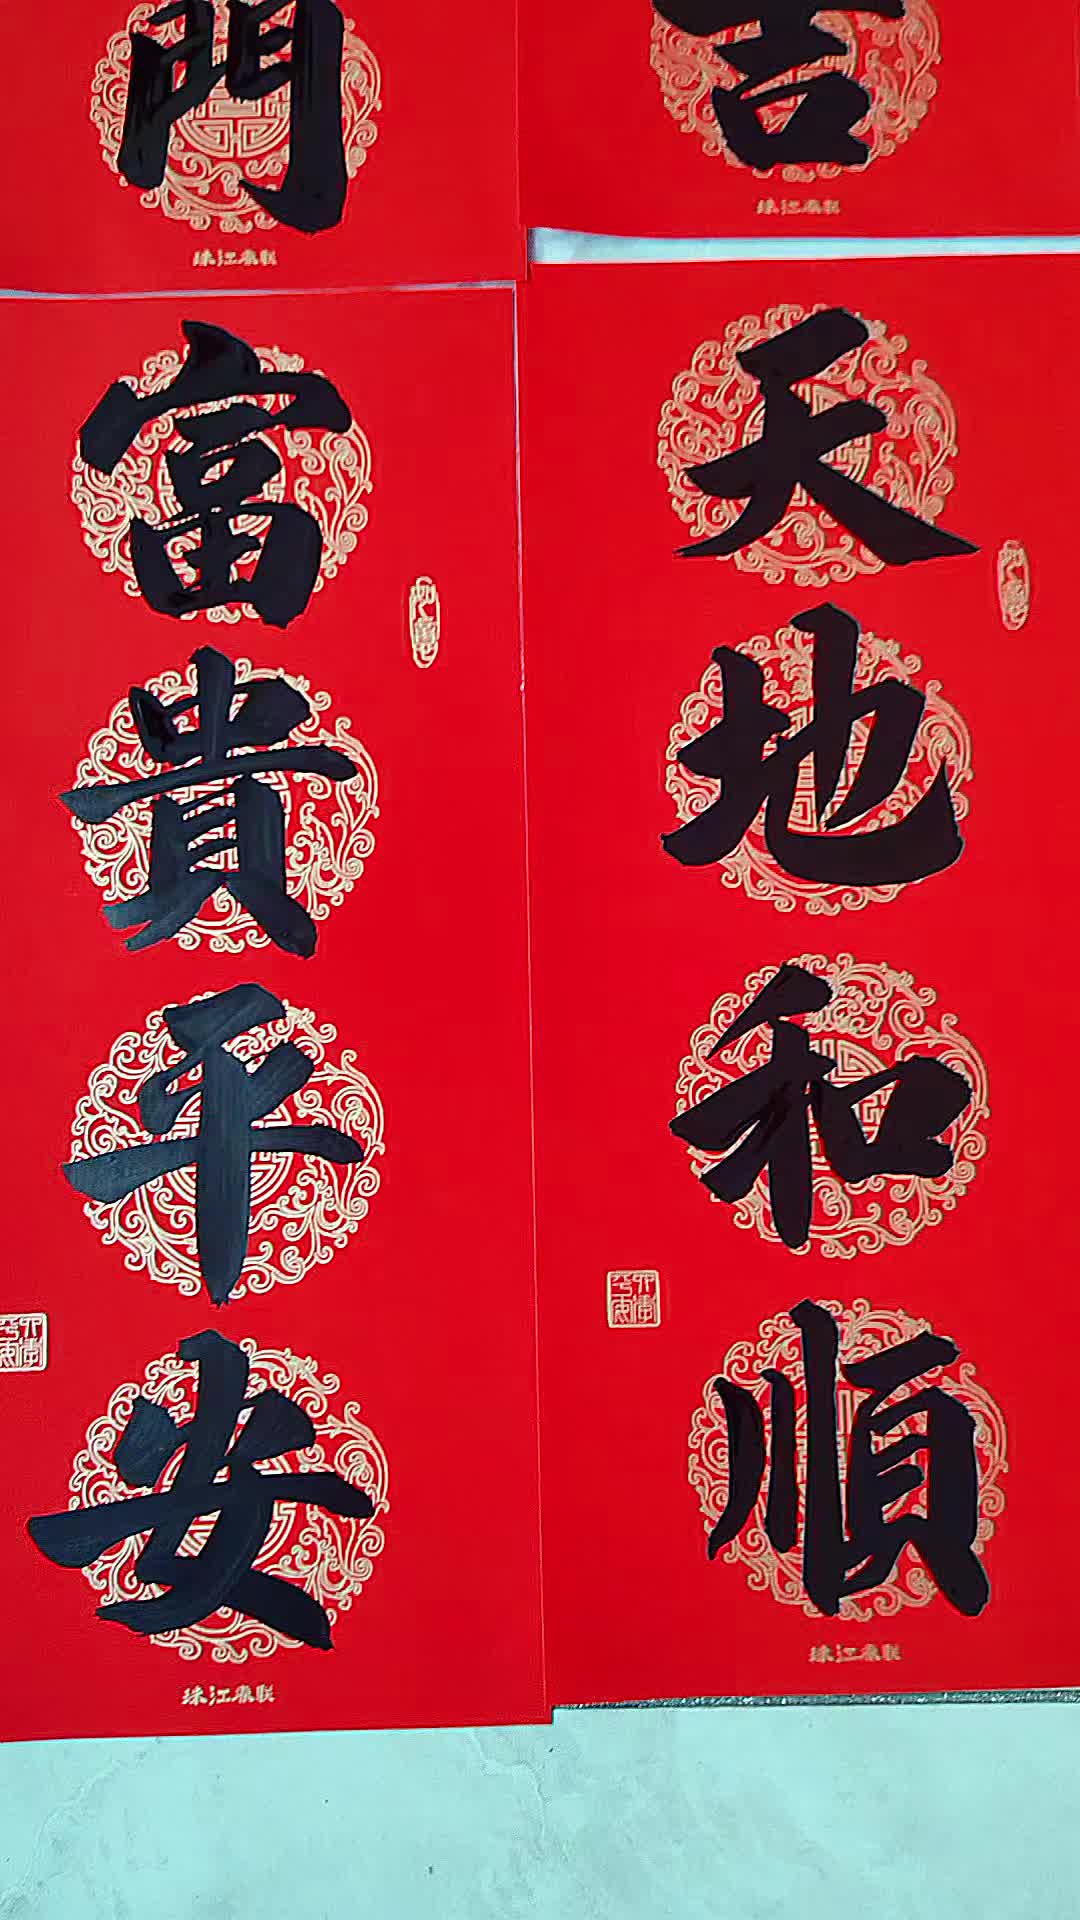 門
吉
珠江春联
珠江春联
富貴平安
天地和順
珠江春联
珠江春联